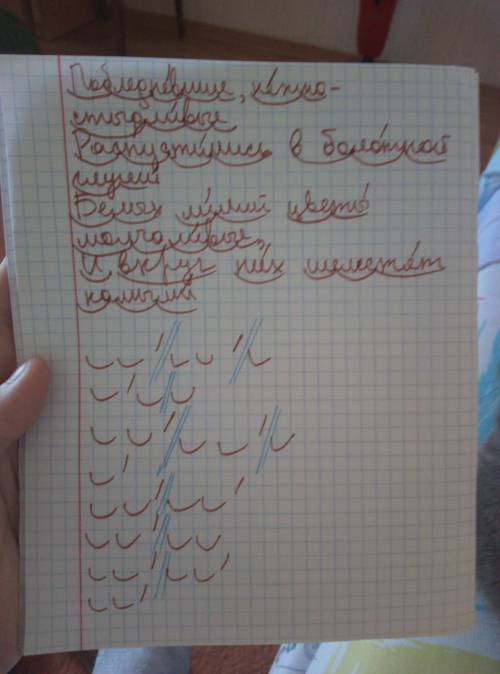 Побледневшие, нежно-
стыдливые
Распустились в болотной
глуши
Белых лилий цветы
молчаливые,
И вкруг них шелестят
камыши